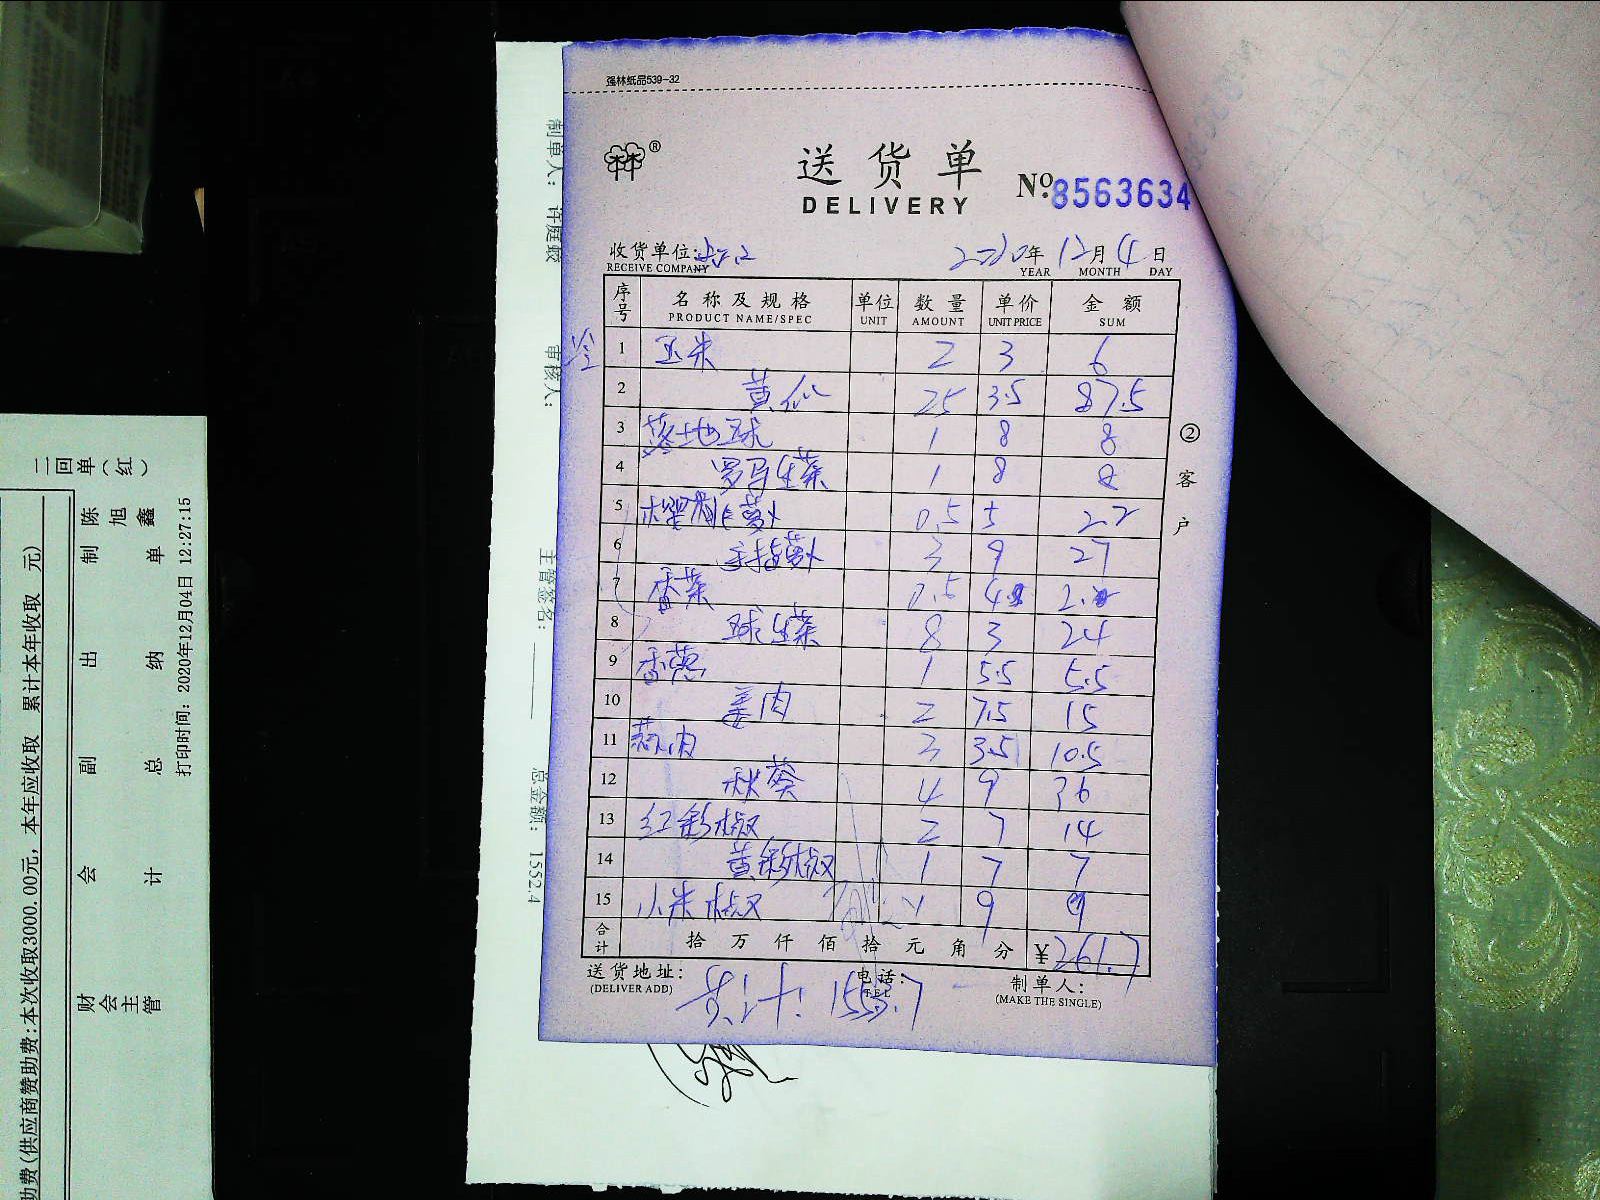 强林纸品539-32
®
送货单
DELIVERY
No.8563634
收货单位:
RECEIVE COMPANY
2020年12月4日
YEAR MONTH DAY
序号 名称及规格 单位 数量 单价 金额
PRODUCT NAME/SPEC UNIT AMOUNT UNIT PRICE SUM
1 玉米 2 3 6
2 黄瓜 25 3.5 87.5
3 落地球 1 8 8
4 罗马生菜 1 8 8
5 樱桃萝卜 0.5 5 2.2
6 手指萝卜 3 9 27
7 香菜 0.5 4
8 球生菜 8 3 24
9 香葱 1 5.5 5.5
10 姜肉 2 7.5 15
11 蒜肉 3 3.5 10.5
12 秋葵 4 9 36
13 红彩椒 2 7 14
14 黄彩椒 1 7 7
15 小米椒 1 9 9
合计 拾万仟佰拾元角分 ¥261.7
送货地址: 电话: 制单人:
(DELIVER ADD) TEL (MAKE THE SINGLE)
共计: 1553.7
②客户
制单人: 许庭
审核人:
主管签名:
总金额: 1552.4
二回单(红)
陈旭鑫
制单
出纳
副总
会计
财会主管
打印时间: 2020年12月04日 12:27:15
助费(供应商赞助费:本次收取3000.00元, 本年应收取 累计本年收取 元)